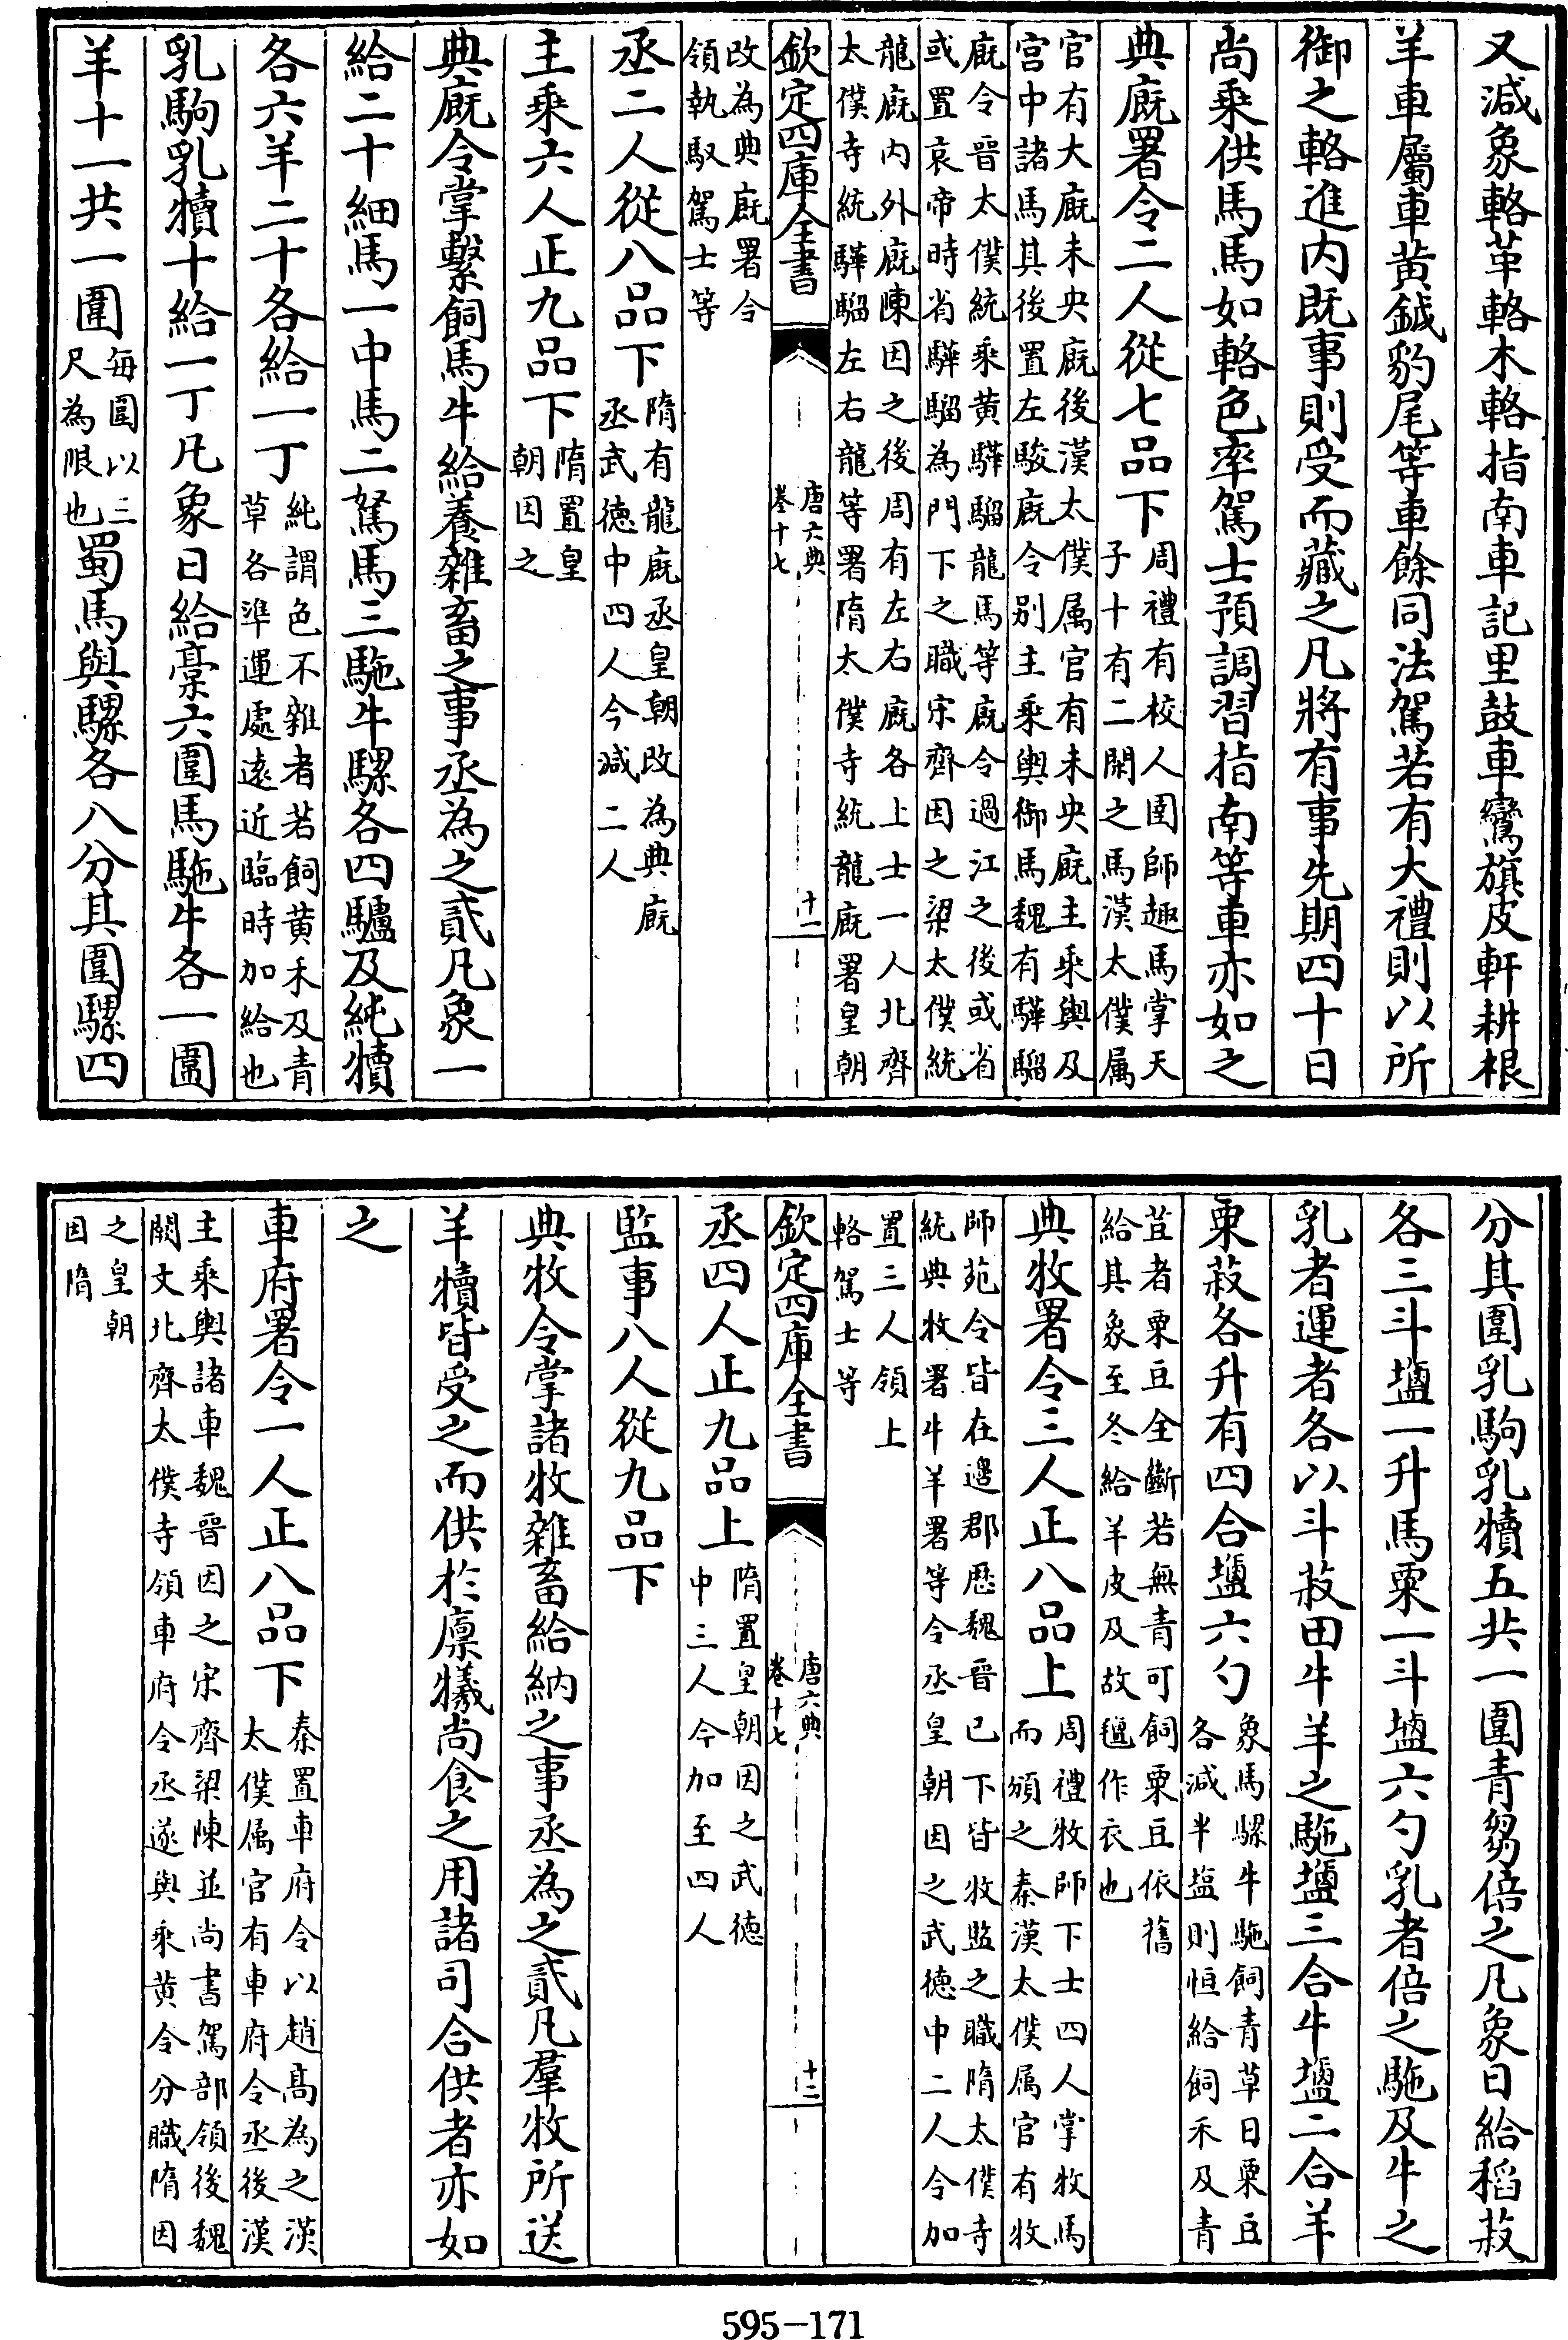 又減象輅革輅木輅指南車記里鼓車鸞旗皮軒耕根
羊車屬車黃鉞豹尾等車餘同法駕若有大禮則以所
御之輅進内既事則受而藏之凡將有事先期四十日
尚乘供馬馬如輅色率駕士預調習指南等車亦如之
典廐署令二人從七品下周禮有校人圉師趣馬掌天
子十有二閑之馬漢太僕属
官有大廐未央廐後漢太僕属官有未央廐主乘輿及
宫中諸馬其後置左駿廐令别主乘輿御馬魏有驊騮
廐令晉太僕統乘黄驊騮龍馬等廐令過江之後或省
或置哀帝時省驊騮為門下之職宋齊因之梁太僕統
龍廐内外廐陳因之後周有左右廐各上士一人北齊
太僕寺統驊騮左右龍等署隋太僕寺統龍廐署皇朝
欽定四庫全書
唐六典
卷十七
十一
改為典廐署令
領執馭駕士等
丞二人從八品下隋有龍廐丞皇朝改為典廐
丞武徳中四人今減二人
主乘六人正九品下隋置皇
朝因之
典廐令掌繫飼馬牛給養雜畜之事丞為之貳凡象一
給二十細馬一中馬二駑馬三駞牛騾各四驢及純犢
各六羊二十各給一丁純謂色不雜者若飼黄禾及青
草各準運處遠近臨時加給也
乳駒乳犢十給一丁凡象日給藁六圍馬駞牛各一圍
羊十一共一圍每圍以三
尺為限也蜀馬與騾各八分其圍騾四
分其圍乳駒乳犢五共一圍青芻倍之凡象日給稻菽
各三斗塩一升馬粟一斗塩六勺乳者倍之駞及牛之
乳者運者各以斗菽田牛羊之駞塩三合牛塩二合羊
粟菽各升有四合塩六勺象馬騾牛駞飼青草日粟豆
各減半塩則恒給飼禾及青
荳者粟豆全斷若無青可飼粟豆依舊
給其象至冬給羊皮及故氊作衣也
典牧署令三人正八品上周禮牧師下士四人掌牧馬
而頒之秦漢太僕属官有牧
師苑令皆在邊郡歴魏晉已下皆牧監之職隋太僕寺
統典牧署牛羊署等令丞皇朝因之武徳中二人今加
置三人領上
輅駕士等
欽定四庫全書
唐六典
卷十七
十二
丞四人正九品上隋置皇朝因之武徳
中三人今加至四人
監事八人從九品下
典牧令掌諸牧雜畜給納之事丞為之貳凡羣牧所送
羊犢皆受之而供於廪犧尚食之用諸司合供者亦如
之
車府署令一人正八品下秦置車府令以趙髙為之漢
太僕属官有車府令丞後漢
主乘輿諸車魏晉因之宋齊梁陳並尚書駕部領後魏
闕文北齊太僕寺領車府令丞遂與乘黄令分職隋因
之皇朝
因隋
595-171